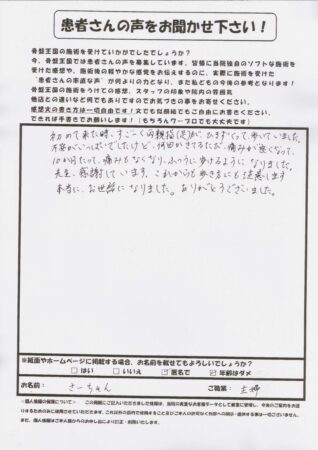 患者さんの声をお聞かせ下さい！
骨盤王国の施術を受けていかがでしたでしょうか？
今、骨盤王国では患者さんの声を募集しています。皆様に当院独自のソフトな施術を
受けた感想や、施術後の軽やかな感覚をお伝えするのに、実際に施術を受けた
患者さんの率直な声”が何よりの力となり、また私どもの今後の参考となります！
骨盤王国の施術をうけての感想、スタッフの印象や院内の雰囲気
他店との違いなど何でもありですのでお気づきの事をお寄せください。
感想文の長さは一切自由です！大でも似顔絵でもご自由にお書きください。
できれば手書きでお願いします！（もちろんワープロでも大丈夫です）
初めて来た時、すごーく両親指(足)が、ひきずって、歩いていました。
不安がいっぱいでしたけど、何回かきてるたび、痛みが無くなって、
10か月たって、痛みもなくなり、ふつうに歩けるように なりました。
先生、感謝しています。これからも歩き方にも注意します
本当に、お世話になりました。ありがとうございました。
※紙面やホームページに掲載する場合、お名前を載せてもよろしいでしょうか？
□はい □いいえ ☑匿名で ☑年齢はダメ
お名前： さーちゃん ご職業： 主婦